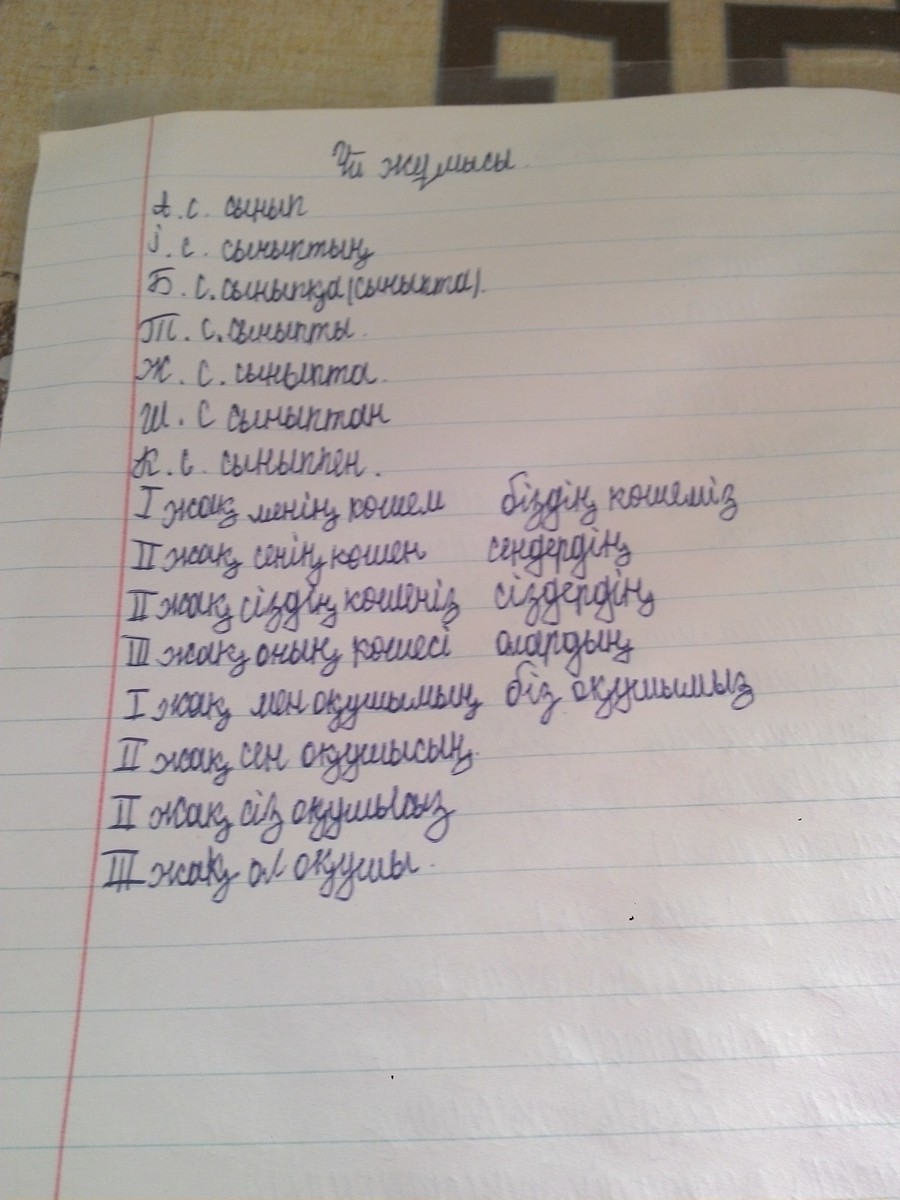 Үй жұмысы.
А.с. сынып
І.с. сыныптың
Б.с. сыныпқа(сыныпта).
Т.с. сыныпты.
Ж.с. сыныпта.
Ш.с сыныптан
К.с. сыныппен.
I жақ менің көшем біздің көшеміз
II жақ сенің көшең сендердің
II жақ сіздің көшеңіз сіздердің
III жақ оның көшесі олардың
I жақ мен оқушымың біз оқушымыз
II жақ сен оқушысың.
II жақ сіз оқушысыз
III жақ ол оқушы.